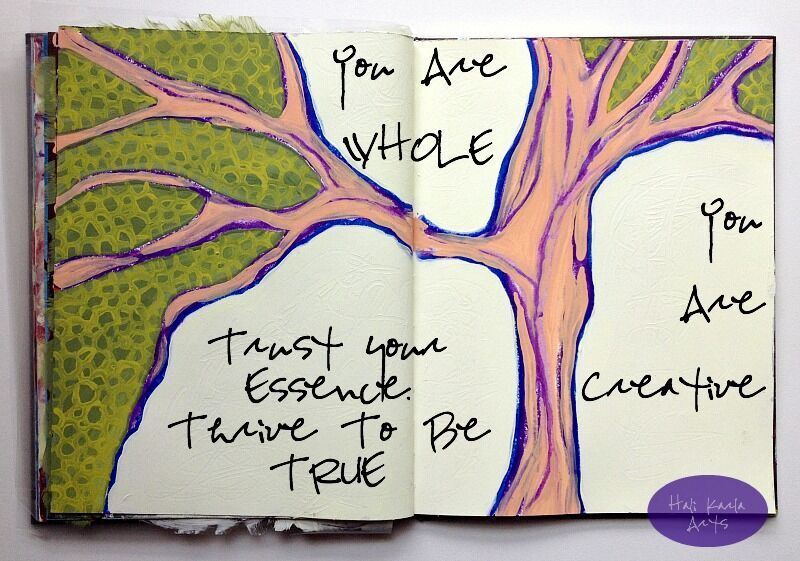 You Are
WHOLE
Trust your
Essence.
Thrive To Be
TRUE
You
Are
Creative
Hali Karla
Arts